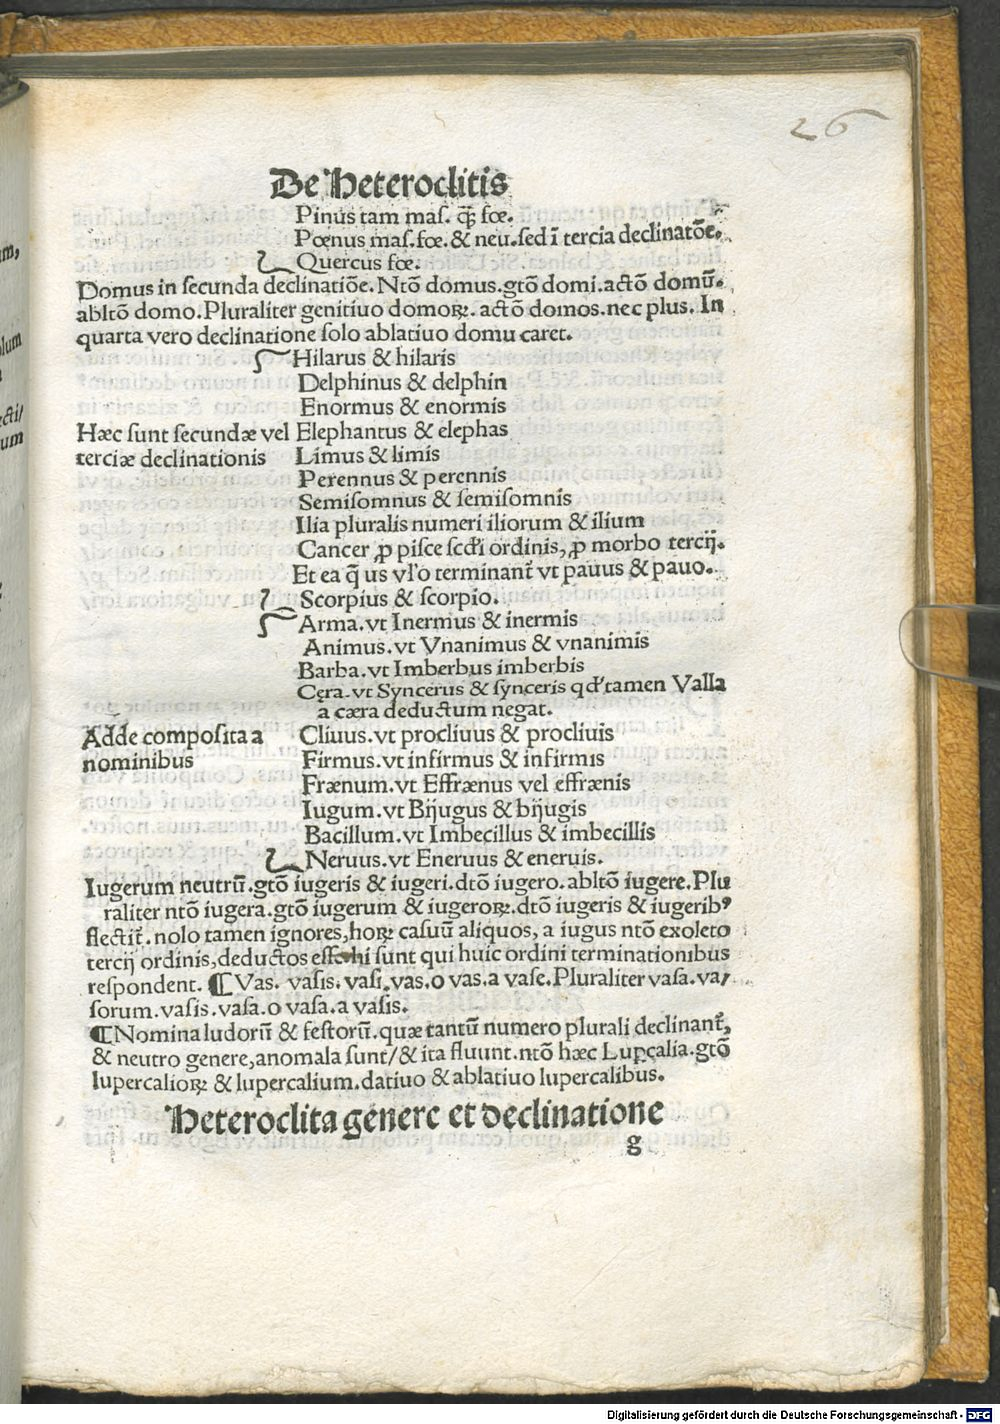 26
De Heteroclitis
Pinus tam mas. q̃ fœ.
Pœnus mas. fœ. & neu. sed ĩ tercia declinatõe.
Quercus fœ.
Domus in secunda declinatiõe. Ntõ domus. gtõ domi. actõ domũ.
abltõ domo. Pluraliter genitiuo domoꝝ. actõ domos. nec plus. In
quarta vero declinatione solo ablatiuo domu caret.
Hilarus & hilaris
Delphinus & delphin
Enormus & enormis
Hæc sunt secundæ vel Elephantus & elephas
terciæ declinationis Limus & limis
Perennus & perennis
Semisomnus & semisomnis
Ilia pluralis numeri iliorum & ilium
Cancer ꝓ pisce scďi ordinis, ꝓ morbo tercij.
Et ea q̃ us vl'o terminant̃ vt pauus & pauo.
Scorpius & scorpio.
Arma. vt Inermus & inermis
Animus. vt Vnanimus & vnanimis
Barba. vt Imberbus imberbis
Cęra. vt Syncerus & synceris qď tamen Valla
a cæra deductum negat.
Adde composita a Cliuus. vt procliuus & procliuis
nominibus Firmus. vt infirmus & infirmis
Frænum. vt Effrænus vel effrænis
Iugum. vt Bijugus & bijugis
Bacillum. vt Imbecillus & imbecillis
Neruus. vt Eneruus & eneruis.
Iugerum neutrũ. gtõ iugeris & iugeri. dtõ iugero. abltõ iugere. Plu
raliter ntõ iugera. gtõ iugerum & iugeroꝝ. dtõ iugeris & iugeribꝰ
flectit̃. nolo tamen ignores, hoꝝ casuũ aliquos, a iugus ntõ exoleto
tercij ordinis, deductos esse hi sunt qui huic ordini terminationibus
respondent. ¶ Vas. vasis. vasi. vas. o vas. a vase. Pluraliter vasa. va/
sorum. vasis. vasa. o vasa. a vasis.
¶ Nomina ludorũ & festorũ. quæ tantũ numero plurali declinant̃,
& neutro genere, anomala sunt/ & ita fluunt. ntõ hæc Lupercalia. gtõ
lupercalioꝝ & lupercalium. datiuo & ablatiuo lupercalibus.
Heteroclita genere et declinatione
g
Digitalisierung gefördert durch die Deutsche Forschungsgemeinschaft - DFG